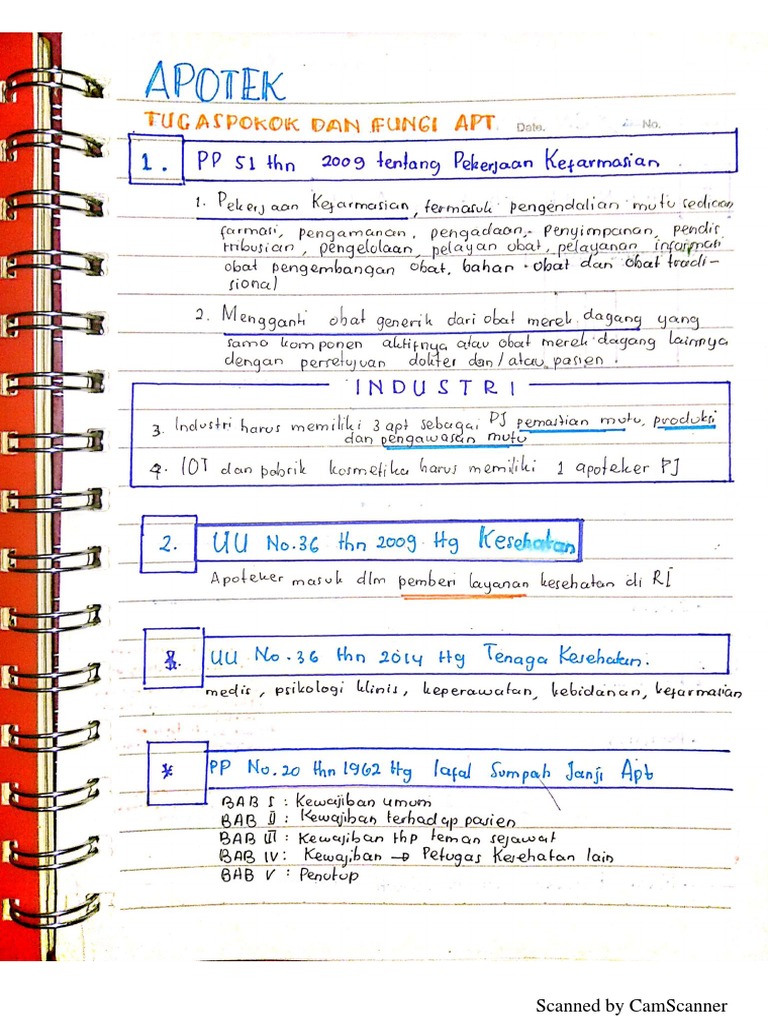 APOTEK
TUGAS POKOK DAN FUNGI APT
Date. No.
1. PP 51 thn 2009 tentang Pekerjaan Kefarmasian
1. Pekerjaan Kefarmasian, termasuk pengendalian mutu sediaan
farmasi, pengamanan, pengadaan, penyimpanan, pendis
tribusian, pengelolaan, pelayan obat, pelayanan informasi
obat pengembangan obat, bahan obat dan obat tradi-
sional
2. Mengganti obat generik dari obat merek dagang yang
sama komponen aktifnya atau obat merek dagang lainnya
dengan persetujuan dokter dan/atau pasien.
INDUSTRI
3. Industri harus memiliki 3 apt sebagai PJ pemastian mutu, produksi
dan pengawasan mutu
4. IOT dan pabrik kosmetika harus memiliki 1 apoteker PJ
2. UU No.36 thn 2009 ttg Kesehatan
Apoteker masuk dlm pemberi layanan kesehatan di RI
UU No.36 thn 2014 ttg Tenaga Kesehatan.
medis, psikologi klinis, keperawatan, kebidanan, kefarmasian
* PP No.20 thn 1962 ttg lafal Sumpah Janji Apt
BAB I : Kewajiban umum
BAB II : Kewajiban terhadap pasien
BAB III : Kewajiban thp teman sejawat
BAB IV : Kewajiban → Petugas Kesehatan lain
BAB V : Penutup
Scanned by CamScanner